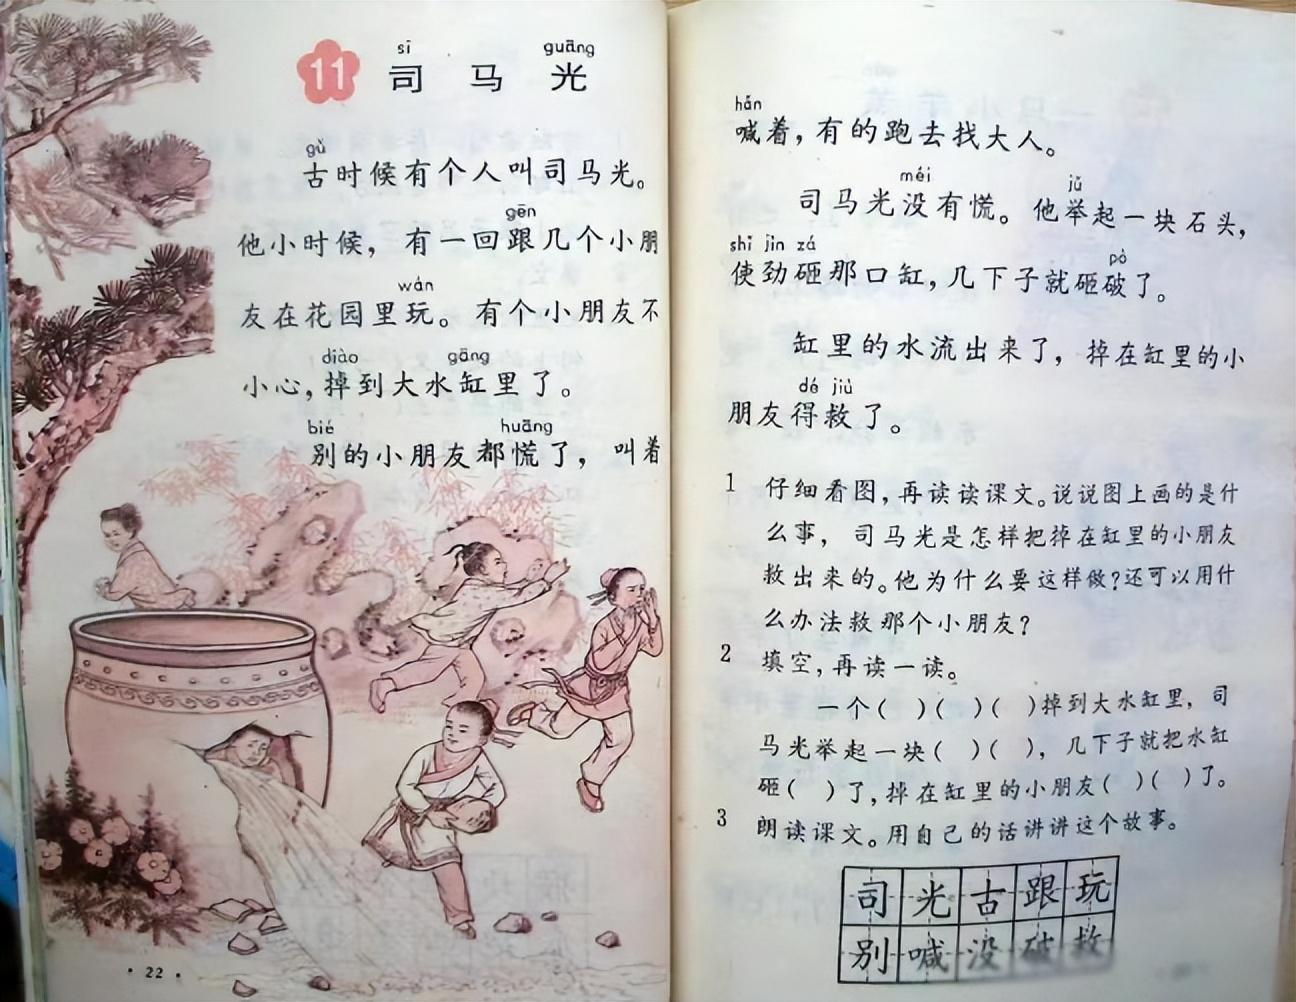 11
sī guāng
司马光
gǔ
古时候有个人叫司马光。
gēn
他小时候，有一回跟几个小朋
wán
友在花园里玩。有个小朋友不
diào gāng
小心，掉到大水缸里了。
bié huāng
别的小朋友都慌了，叫着
·22·
hǎn
喊着，有的跑去找大人。
méi jǔ
司马光没有慌。他举起一块石头，
shǐ jìn zá pò
使劲砸那口缸，几下子就砸破了。
缸里的水流出来了，掉在缸里的小
dé jiù
朋友得救了。
1 仔细看图，再读读课文。说说图上画的是什
么事，司马光是怎样把掉在缸里的小朋友
救出来的。他为什么要这样做？还可以用什
么办法救那个小朋友？
2 填空，再读一读。
一个（ ）（ ）（ ）掉到大水缸里，司
马光举起一块（ ）（ ），几下子就把水缸
砸（ ）了，掉在缸里的小朋友（ ）（ ）了。
3 朗读课文。用自己的话讲讲这个故事。
司光古跟玩
别喊没破救